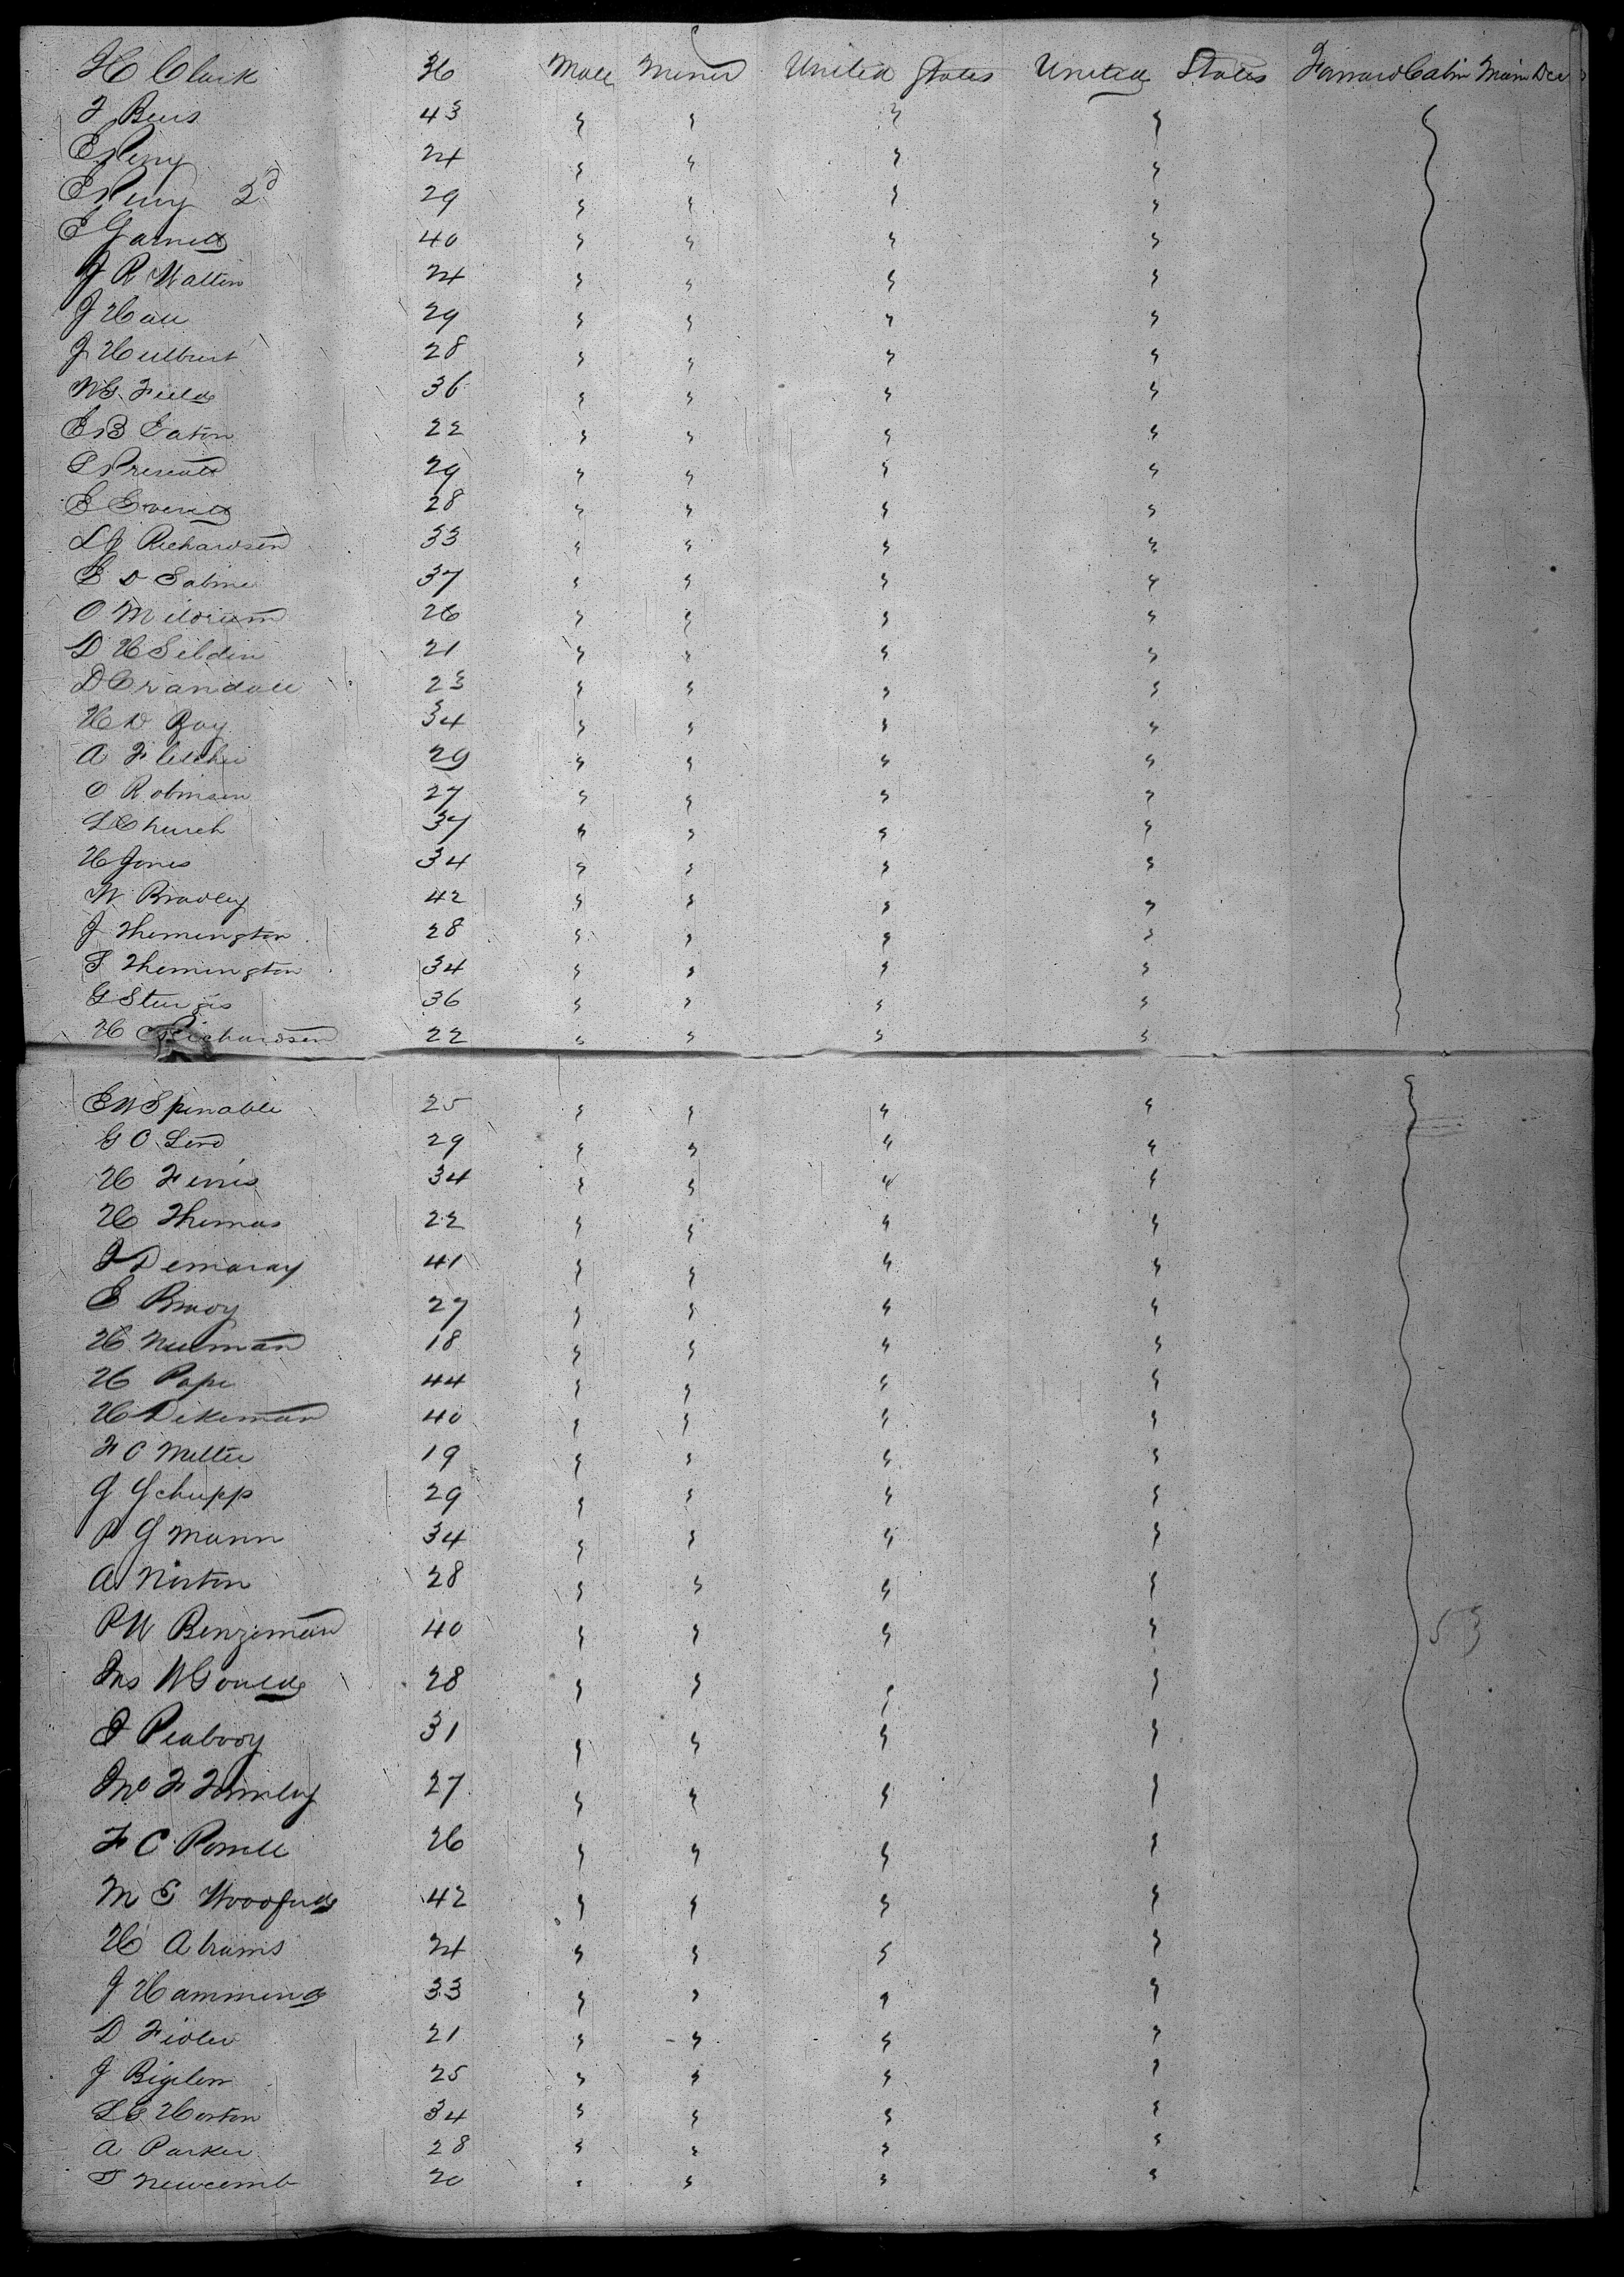 H Clark 36 Male Miner United States United States Forward Cabin Main Deck
F Beers 43 " " " "
E Perry 24 " " " "
E Perry 2d 29 " " " "
E Garnett 40 " " " "
J R Walton 24 " " " "
J Hall 29 " " " "
J Hulburt 28 " " " "
W G Field 36 " " " "
E B Eaton 22 " " " "
S Prescott 29 " " " "
E Everett 28 " " " "
L J Richardson 33 " " " "
E D Sabine 37 " " " "
O Mildrum 26 " " " "
D H Selden 21 " " " "
D Crandall 23 " " " "
H D Ray 34 " " " "
A Fletcher 29 " " " "
O Robinson 27 " " " "
L Church 37 " " " "
H Jones 34 " " " "
W Bradley 42 " " " "
J Themington 28 " " " "
S Themington 34 " " " "
G Sturgis 36 " " " "
H C Richardson 22 " " " "
E W Spinable 25 " " " "
G O Lend 29 " " " "
H Ferris 34 " " " "
H Thomas 22 " " " "
J Demaray 41 " " " "
E Brady 27 " " " "
H Newman 18 " " " "
H Pape 44 " " " "
H Dikeman 40 " " " "
F C Miller 19 " " " "
G Schupp 29 " " " "
P G Mann 34 " " " "
A Norton 28 " " " "
P W Benzeman 40 " " " " 53
Jas W Gould 28 " " " "
J Peabody 31 " " " "
Jno F Finley 27 " " " "
F C Powell 26 " " " "
M E Woodford 42 " " " "
H Abrams 24 " " " "
J Hammend 33 " " " "
D Fidler 21 " " " "
J Bigelow 25 " " " "
L G Horton 34 " " " "
A Parker 28 " " " "
T Newcomb 20 " " " "